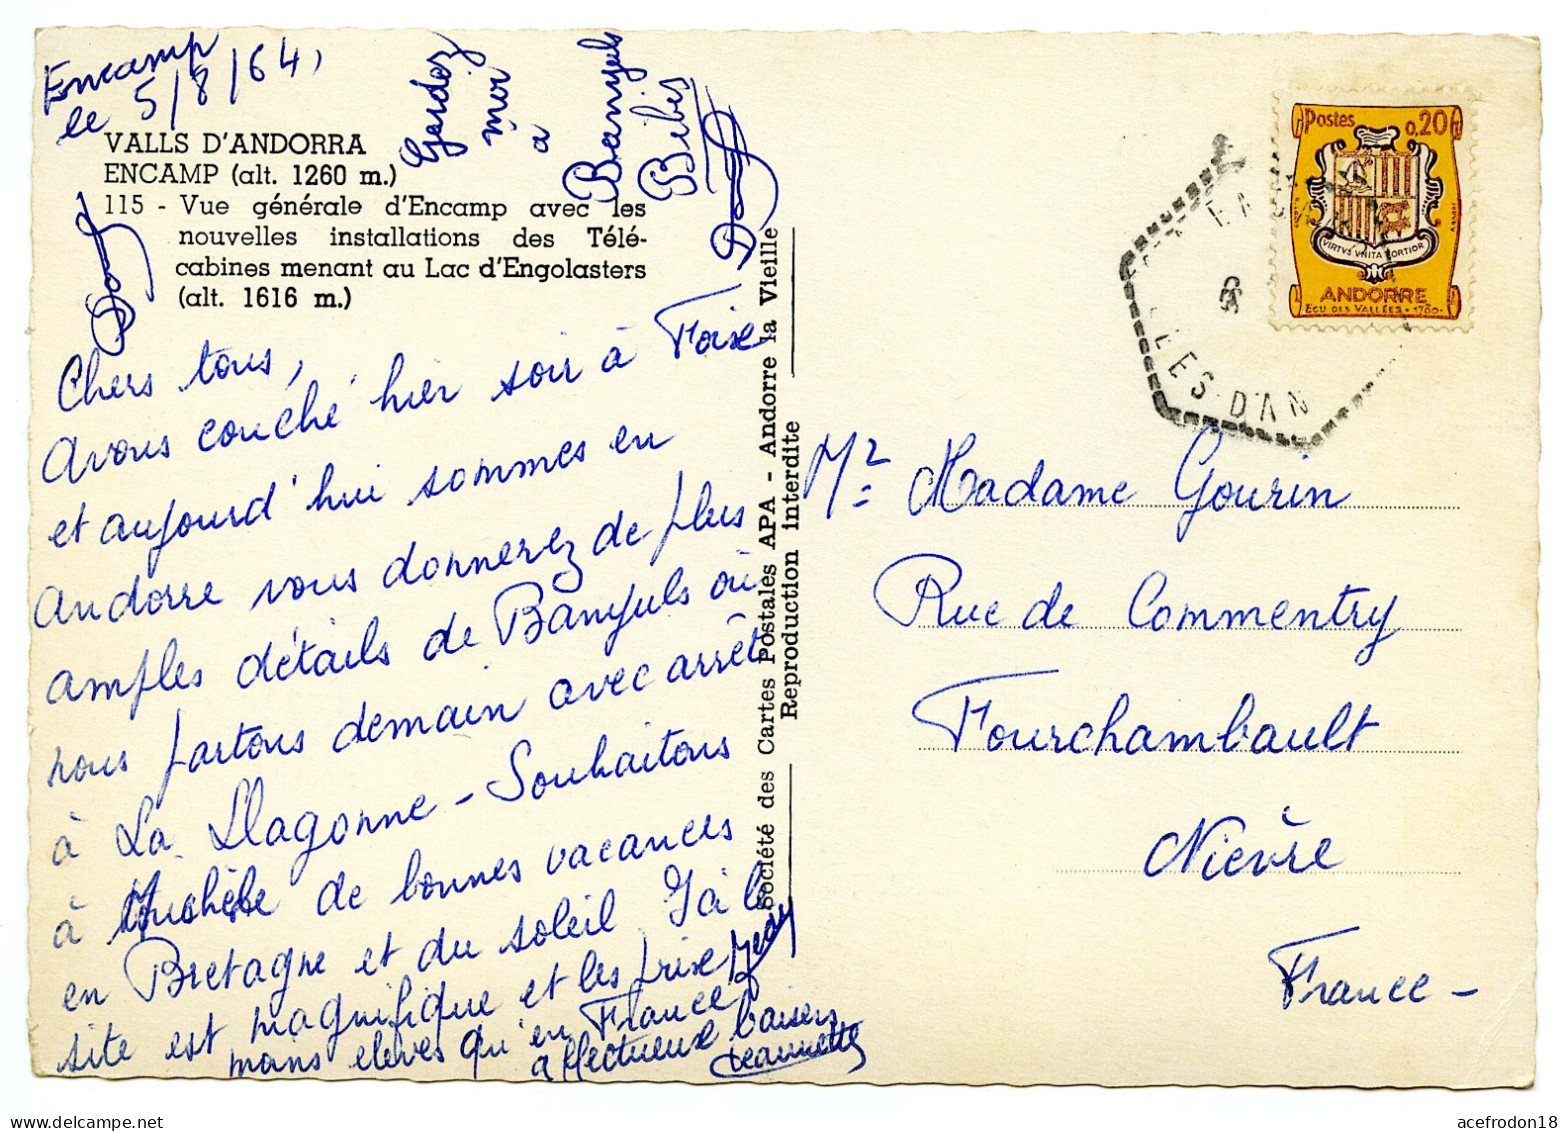 Encamp
le 5/8/64,
VALLS D'ANDORRA
ENCAMP (alt. 1260 m.)
115 - Vue générale d'Encamp avec les
nouvelles installations des Télé-
cabines menant au Lac d'Engolasters
(alt. 1616 m.)
Gardez
moi
à
Banyuls
Bibis
Chers tous,
Avons couché hier soir à Foix
et aujourd'hui sommes en
Andorre vous donnerez de plus
amples détails de Banyuls où
nous partons demain avec arrêt
à La Llagonne - Souhaitons
à Michèle de bonnes vacances
en Bretagne et du soleil. Ici le
site est magnifique et les prix
moins élevés qu'en France
affectueux baisers
Jeannette
Société des Cartes Postales APA - Andorre la Vieille
Reproduction interdite
Postes 0,20F
VIRTVS VNITA FORTIOR
ANDORRE
ECU DES VALLÉES - 1760
LES-D'AN
Mr Madame Gourin
Rue de Commentry
Fourchambault
Nièvre
France -
acefrodon18